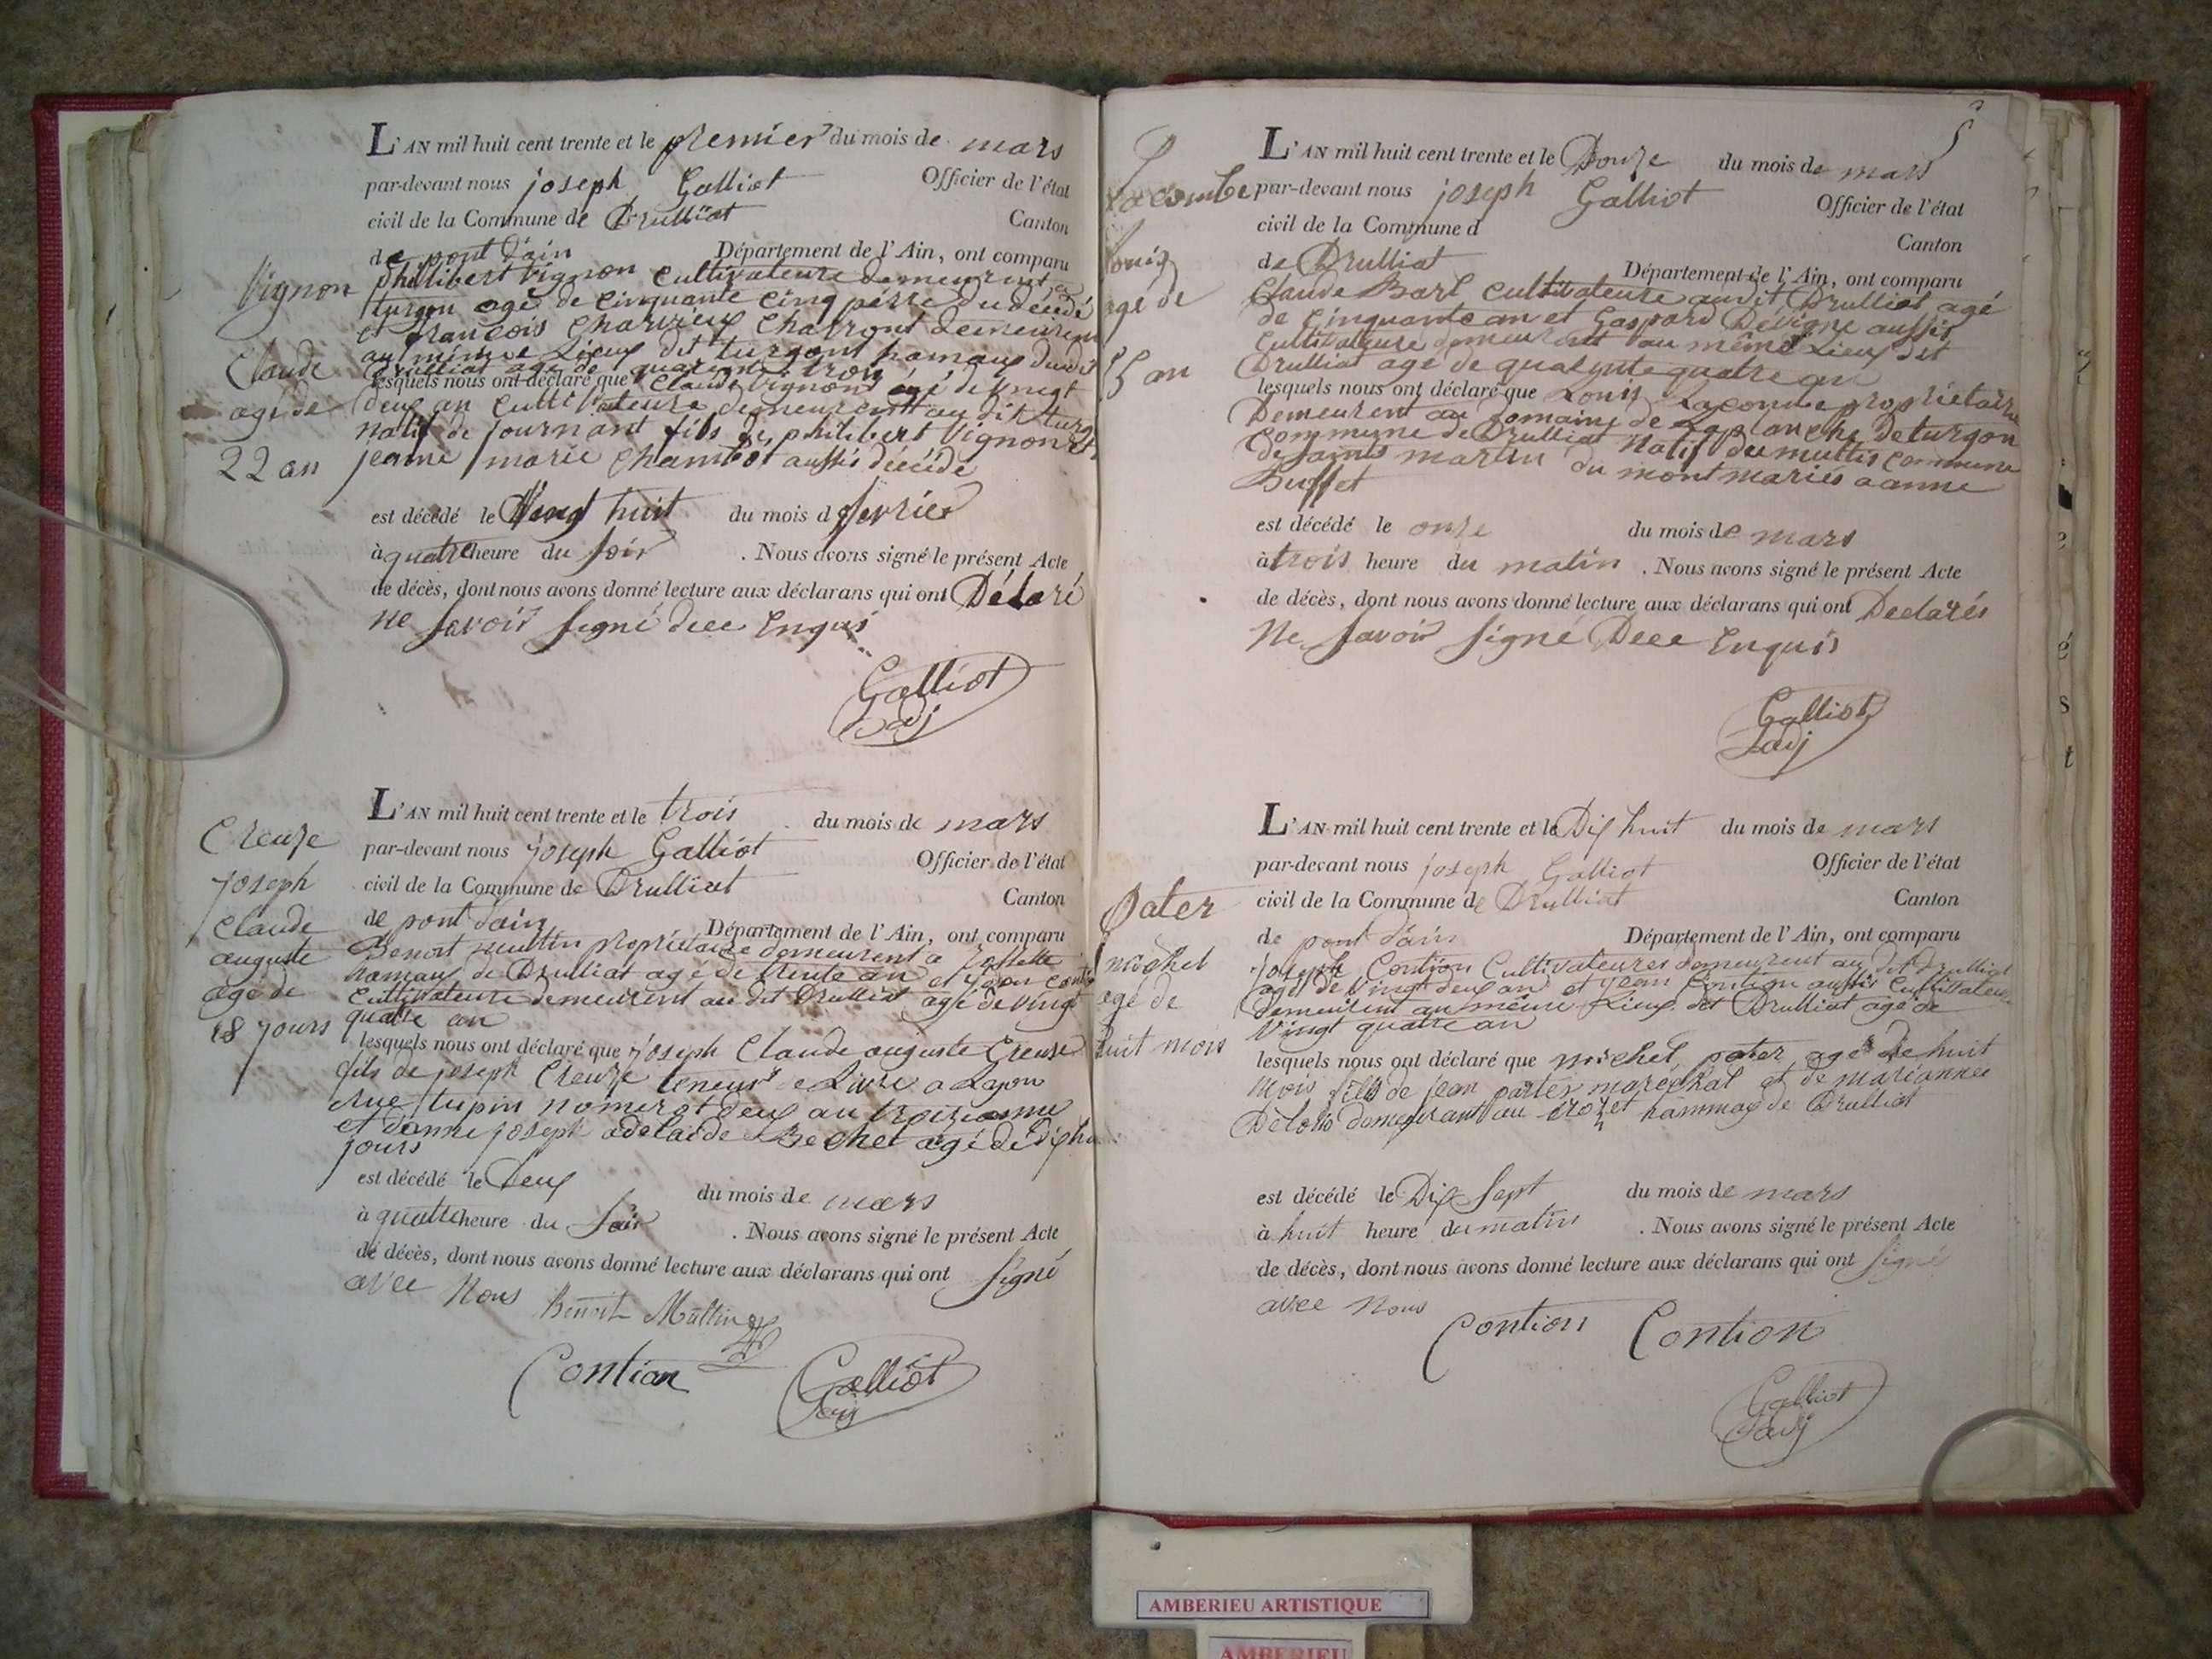 L'AN mil huit cent trente et le premier du mois de mars
par-devant nous joseph Galliot Officier de l'état
civil de la Commune de Druilliat Canton
de pont d'ain Département de l'Ain, ont comparu
Vignon
Claude
agé de
22 an
philibert Vignon cultivateure demeurent a
turgon agé de cinquante cinq pérre du décédé
et francois Charvieux Charront demeurent
au même Lieux dit turgont hamaux dudit
Drulliat agé de quarente trois
lesquels nous ont déclaré que Claude Vignont agé de vingt
deux an cultivateure demeurent au dit turgon
natif de journant fils de philibert Vignon et
jeanne marie Chambot aussis décéde
est décédé le Vingt huit du mois d fevrier
à quatre heure du soir . Nous avons signé le présent Acte
de décès, dont nous avons donné lecture aux déclarans qui ont Déclaré
ne savoir signé dece Enquis
Galliot
adj
Creuze
joseph
Claude
auguste
agé de
18 jours
L'AN mil huit cent trente et le trois du mois de mars
par-devant nous joseph Galliot Officier de l'état
civil de la Commune de Drulliat Canton
de pont d'ain Département de l'Ain, ont comparu
Benoit Multin propriétaire demeurent a
hamaux de Drulliat agé de trente an et jean
cultivateure demeurent au dit Drulliat agé de vingt
quatre an
lesquels nous ont déclaré que joseph Claude auguste Creuze
fils de joseph Creuze teneur de Livre a Lyon
rue tupin nomerot deux au troizieme
et danne joseph adelaide Bechet agé de dix hu
jours
est décédé le deux du mois de mars
à quatre heure du soir . Nous avons signé le présent Acte
de décès, dont nous avons donné lecture aux déclarans qui ont signé
avec nous Benoit Multin
Contion Galliot
adj
L'AN mil huit cent trente et le Douze du mois de mars
par-devant nous joseph Galliot Officier de l'état
civil de la Commune d Canton
de Drulliat Département de l'Ain, ont comparu
Lacombe
Louis
agé de
55 an
Claude Barl cultivateure audit Drulliat agé
de cinquante an et Gaspard Dévigne aussis
cultivateure demeurant au même Lieux dit
Drulliat agé de quarente quatre an
lesquels nous ont déclaré que Louis Lacombe propriétaire
Demeurent au Domaine de Laplanche de turgon
Commune de Drulliat Natif du multis commune
de saint martin du mont mariés a anne
Buffet
est décédé le onze du mois de mars
à trois heure du matin . Nous avons signé le présent Acte
de décès, dont nous avons donné lecture aux déclarans qui ont Declarés
Ne savoir signé Dece Enquis
Galliot
adj
L'AN mil huit cent trente et le Dix huit du mois de mars
par-devant nous joseph Galliot Officier de l'état
civil de la Commune de Drulliat Canton
de pont d'ain Département de l'Ain, ont comparu
Pater
michel
agé de
huit mois
joseph Contion Cultivateures demeurent au dit Drulliat
agé de vingt deux an et jean Contion aussis Cultivateure
demeurent au même Lieux dit Drulliat agé de
vingt quatre an
lesquels nous ont déclaré que michel pater agé de huit
mois fills de jean pater maréchal et de marianne
demeurant au crozet hammaux de Drulliat
est décédé le Dix sept du mois de mars
à huit heure du matin . Nous avons signé le présent Acte
de décès, dont nous avons donné lecture aux déclarans qui ont signés
avec nous
Contion Contion
Galliot
adj
AMBERIEU ARTISTIQUE
AMBERIEU